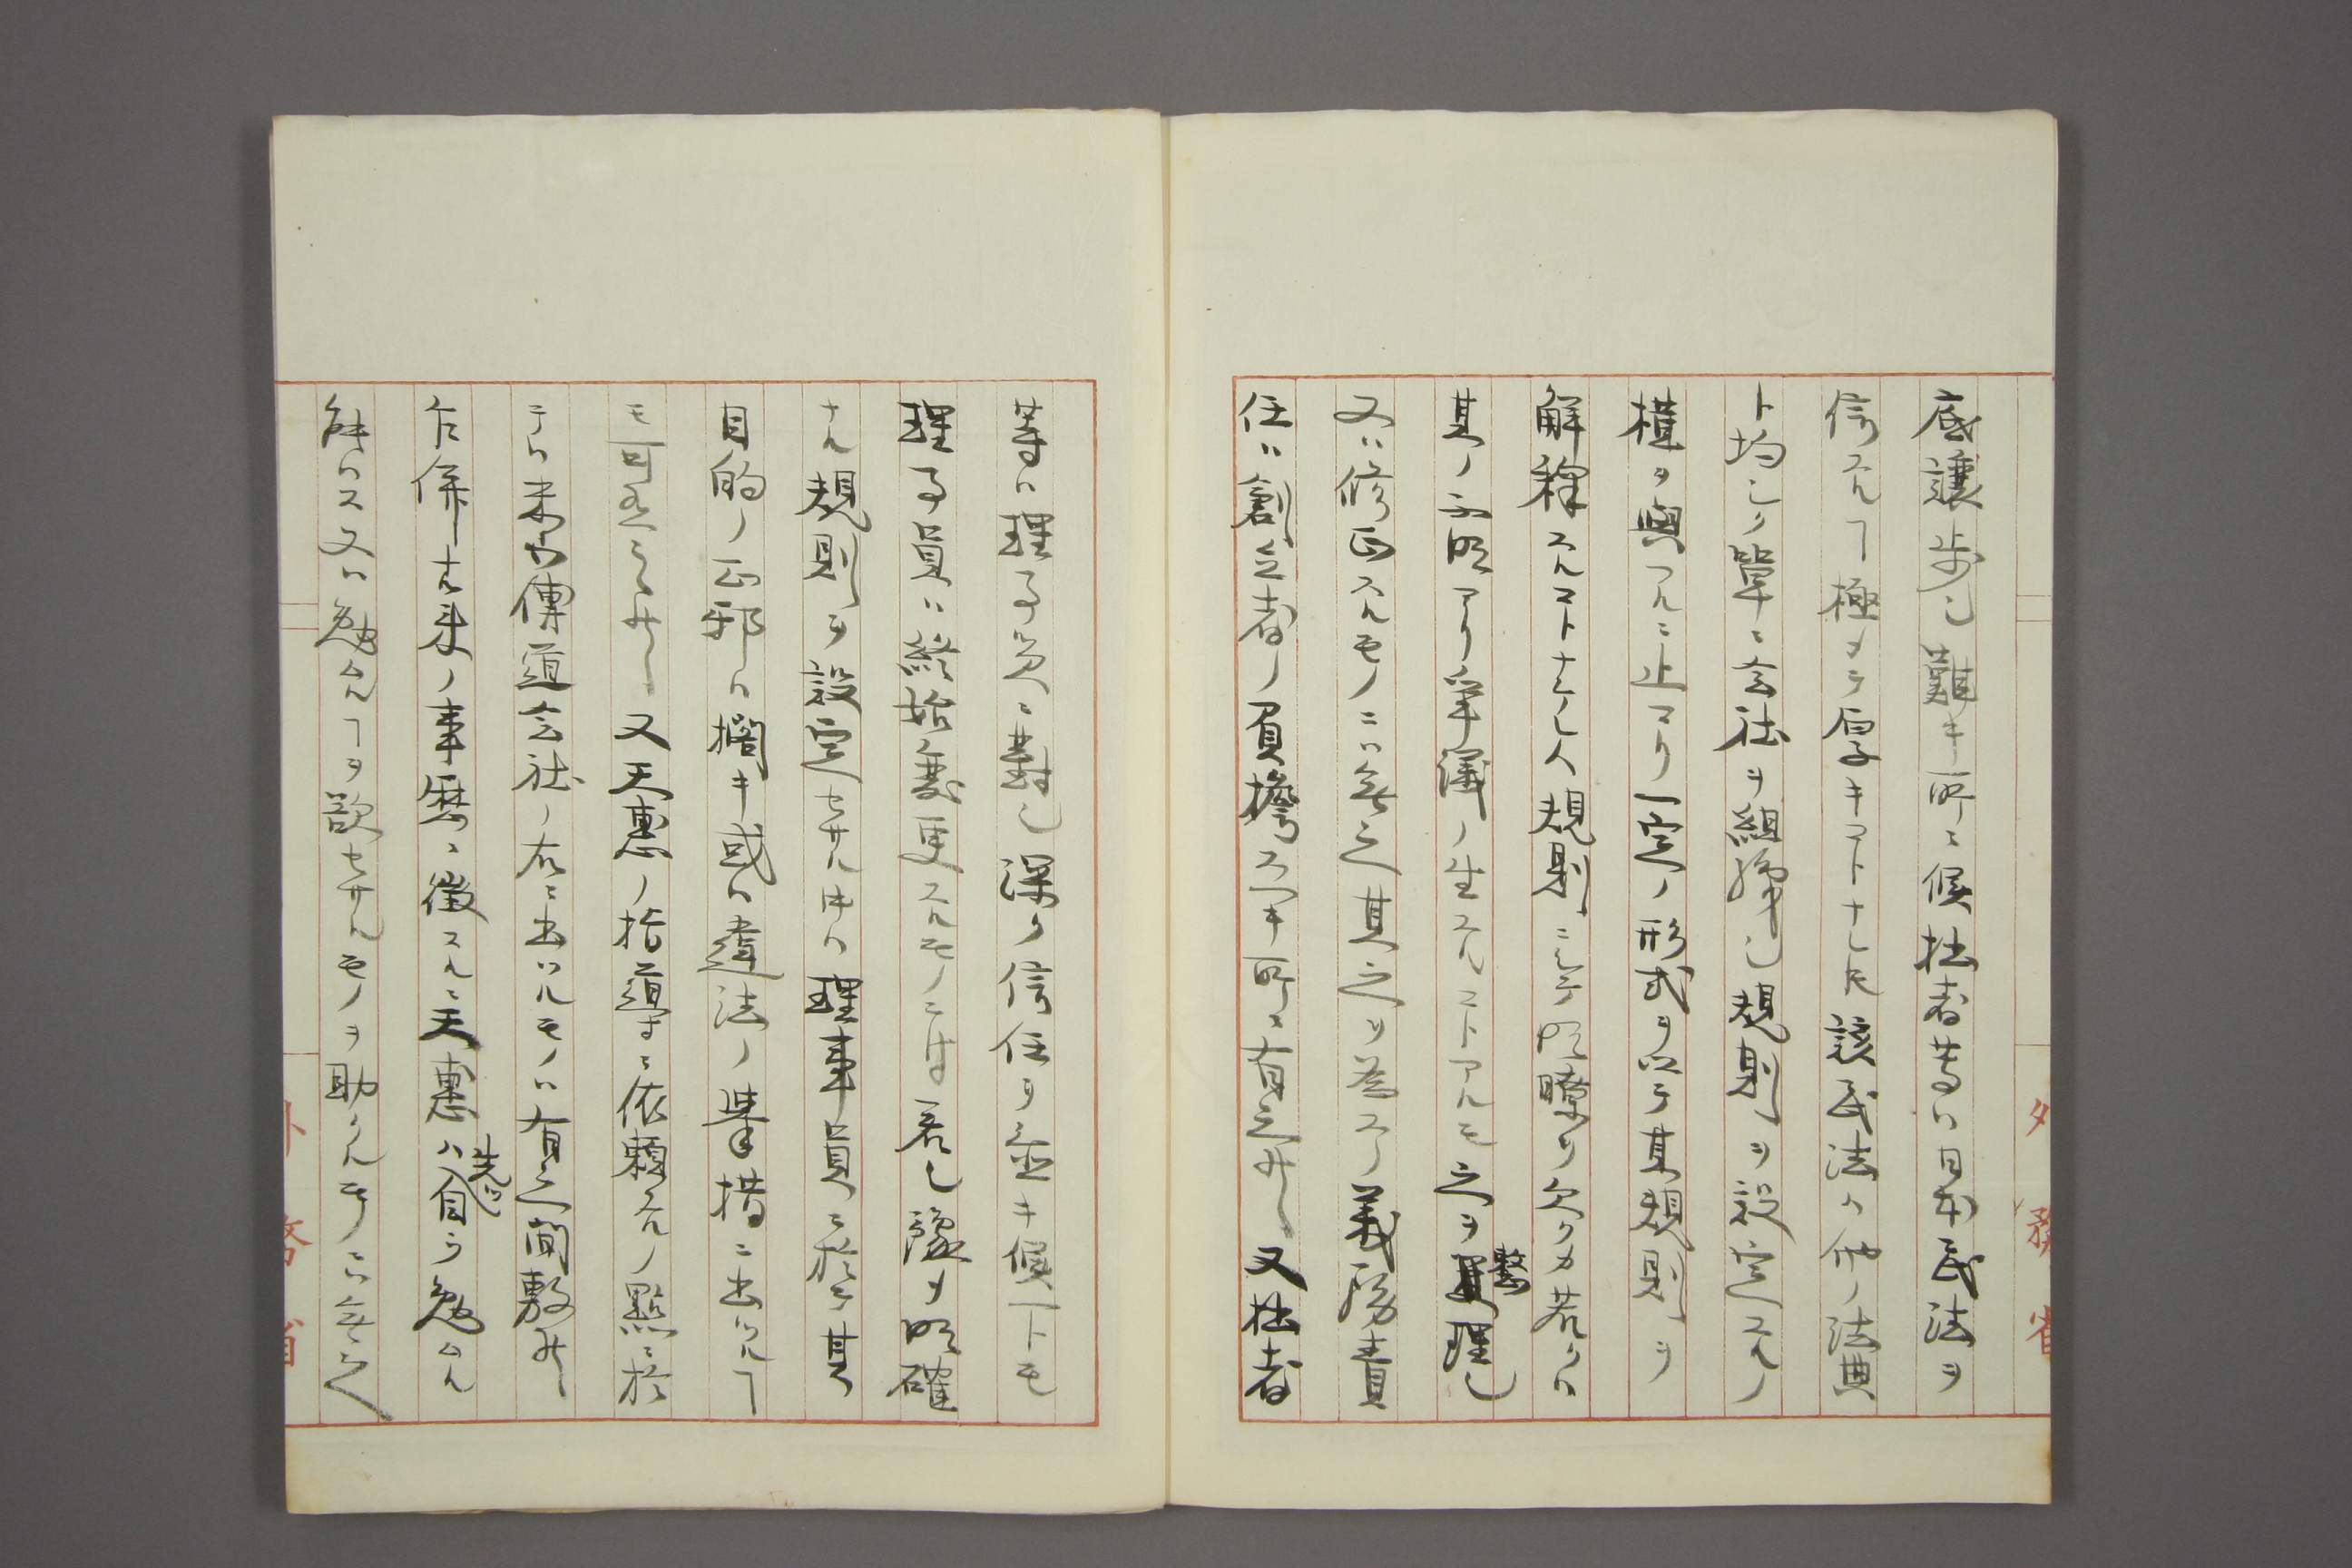 底讓歩シ難キ所ニ候拙者等ハ日本民法ヲ
信スルヿ極メテ厚キコトナレ𪜈該民法ハ他ノ法典
ト均シク單ニ会社ヲ組織シ規則ヲ設定スルノ
權ヲ與フルニ止マリ一定ノ形式ヲ以テ其規則ヲ
解釋スルコトナシ人規則ニシテ明瞭ヲ欠クカ若クハ
其ノ不明ヨリ爭議ノ生スルコトアルモ之ヲ整理シ
又ハ修正スルモノニハ無之其之ヲ為スノ義務責
任ハ創立者ノ負擔スヘキ所ニ有之候又拙者
等ハ理事員ニ對シ深ク信任ヲ置キ候ヘトモ
理事員ハ終始変更スルモノニ付若シ豫メ明確
ナル規則ヲ設定セサル中ハ理事員ニ於テ其
目的ノ正邪ハ擱キ或ハ違法ノ舉措ニ出ツルヿ
モ可有之候又天惠ノ指導ニ依頼スルノ點ニ於
テハ米国傳道会社ノ右ニ出ツルモノハ有之間敷候
乍併古来ノ事歴ニ徴スルニ天惠ハ先ツ自ラ勉ムル
能ハス又ハ勉ムルヿヲ欲セサルモノヲ助クルモノニハ無之
外務省
外務省